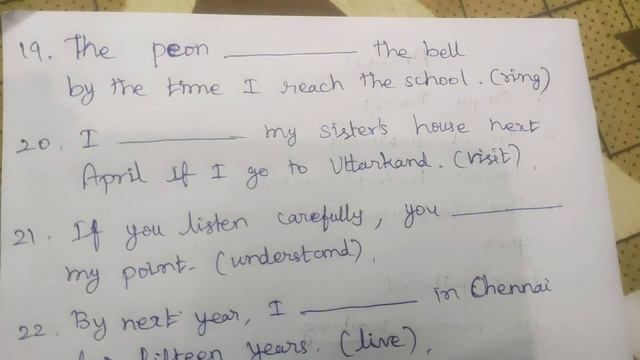 19. The peon ________ the bell
by the time I reach the school. (ring)
20. I ________ my sister's house next
April if I go to Uttarkand. (visit).
21. If you listen carefully, you ________
my point. (understand).
22. By next year, I ________ in Chennai
fifteen years. (live).